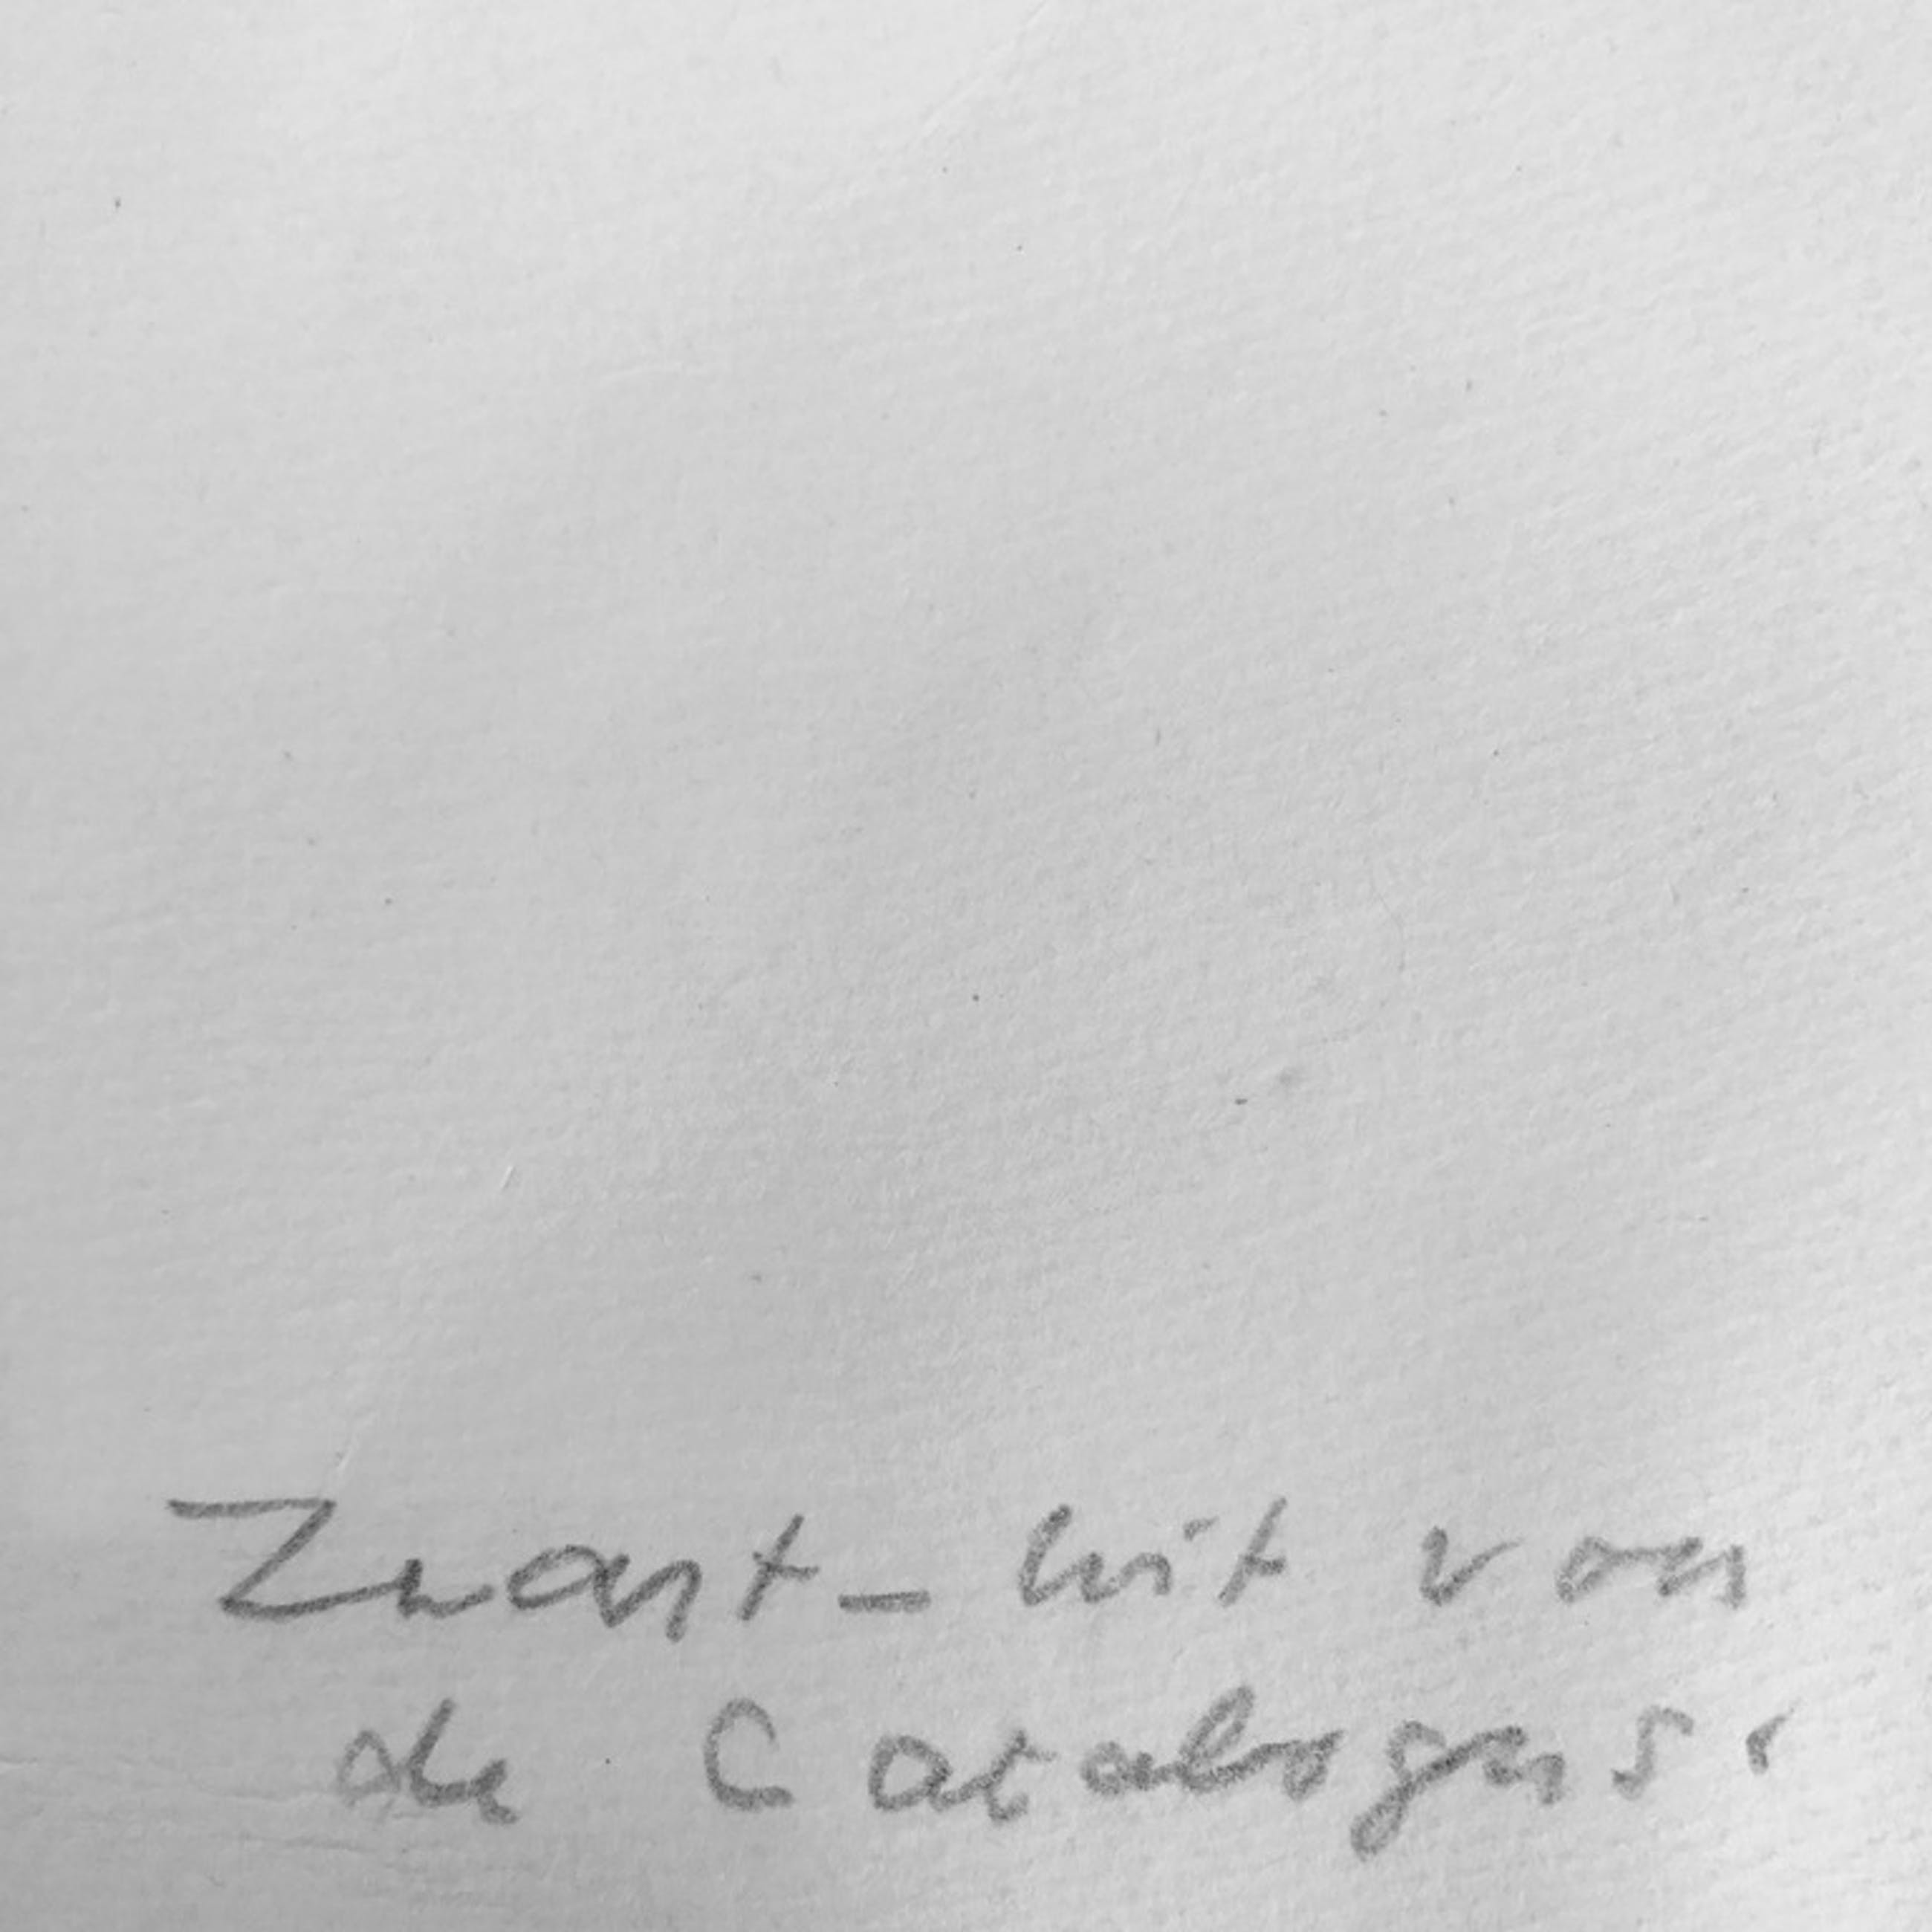 Zwart - wit van
de Catalogus.